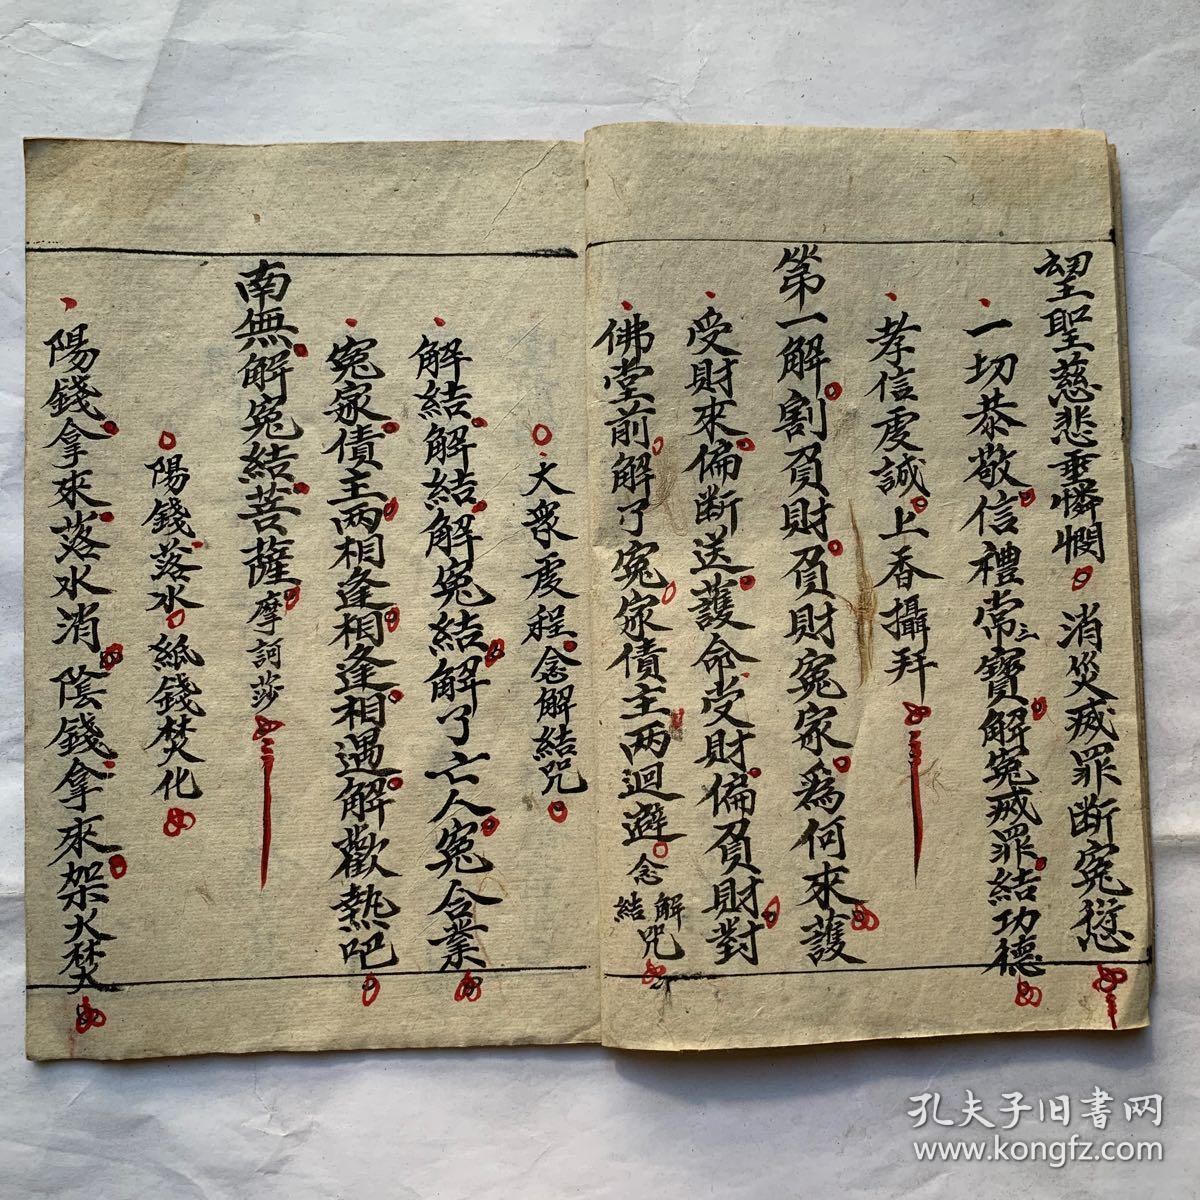 望聖慈悲垂憐憫 消災滅罪断寃愆
一切恭敬信禮常三寶解寃滅罪結功德
孝信虔誠上香攝拜
第一解割負財負財寃家為何來護
受財來偏断送護命受財偏負財對
佛堂前解了寃家債主兩迴避念解結咒
大衆虔程念解結咒
解結解結解寃結解了亡人寃合業
寃家債主兩相逢相逢相遇解歡熱吧
南無解寃結菩薩摩訶莎
陽錢落水紙錢焚化
陽錢拿來落水消陰錢拿來架火焚
孔夫子旧書网
www.kongfz.com